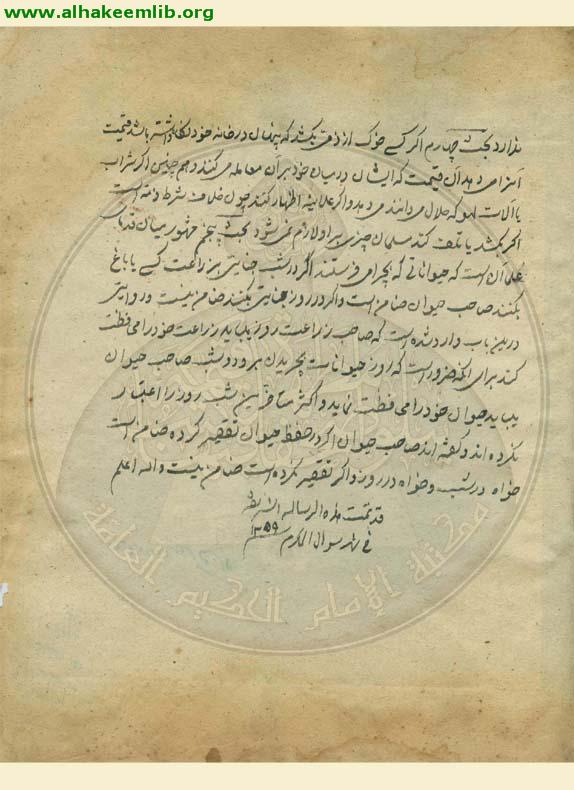 www.alhakeemlib.org
ندارد بحث چهارم اگر کسے خوک از ذمی بکشد که پنهان در خانه خود نگاه داشته باشد قیمت
آنرا می دهد آن قیمت که ایشان در میان خود بر آن معامله می کنند و هم چنین اگر شراب
یا آلات لهو که حلال می دانند می دهد و اگر علانیه اظهار کنند چون خلاف شرط ذمه است
اگر بکشد یا تلف کند مسلمان چیزی بر او لازم نمی شود بحث پنجم مشهور میان قدماء
علما آن است که حیواناتی که بچرا می فرستند اگر در شب جنایتی بر زراعت کسے یا باغ
بکنند صاحب حیوان ضامن است و اگر در روز جنایتی بکنند ضامن نیست و روایتی
درین باب وارد شده است که صاحب زراعت روز بباید زراعت خود را محافظت
کند برای آنکه ضرور است که روز حیوانات بچریدن برود و شب صاحب حیوان
بباید حیوان خود را محافظت نماید و اکثر متأخرین شب و روز را اعتبار
نکرده اند و گفته اند صاحب حیوان اگر در حفظ حیوان تقصیر کرده ضامن است
خواه در شب و خواه در روز و اگر تقصیر نکرده است ضامن نیست والله اعلم
قد تمت هذه الرسالة الشریفة
فی شهر شوال المکرم
مكتبة الإمام الحكيم العامة